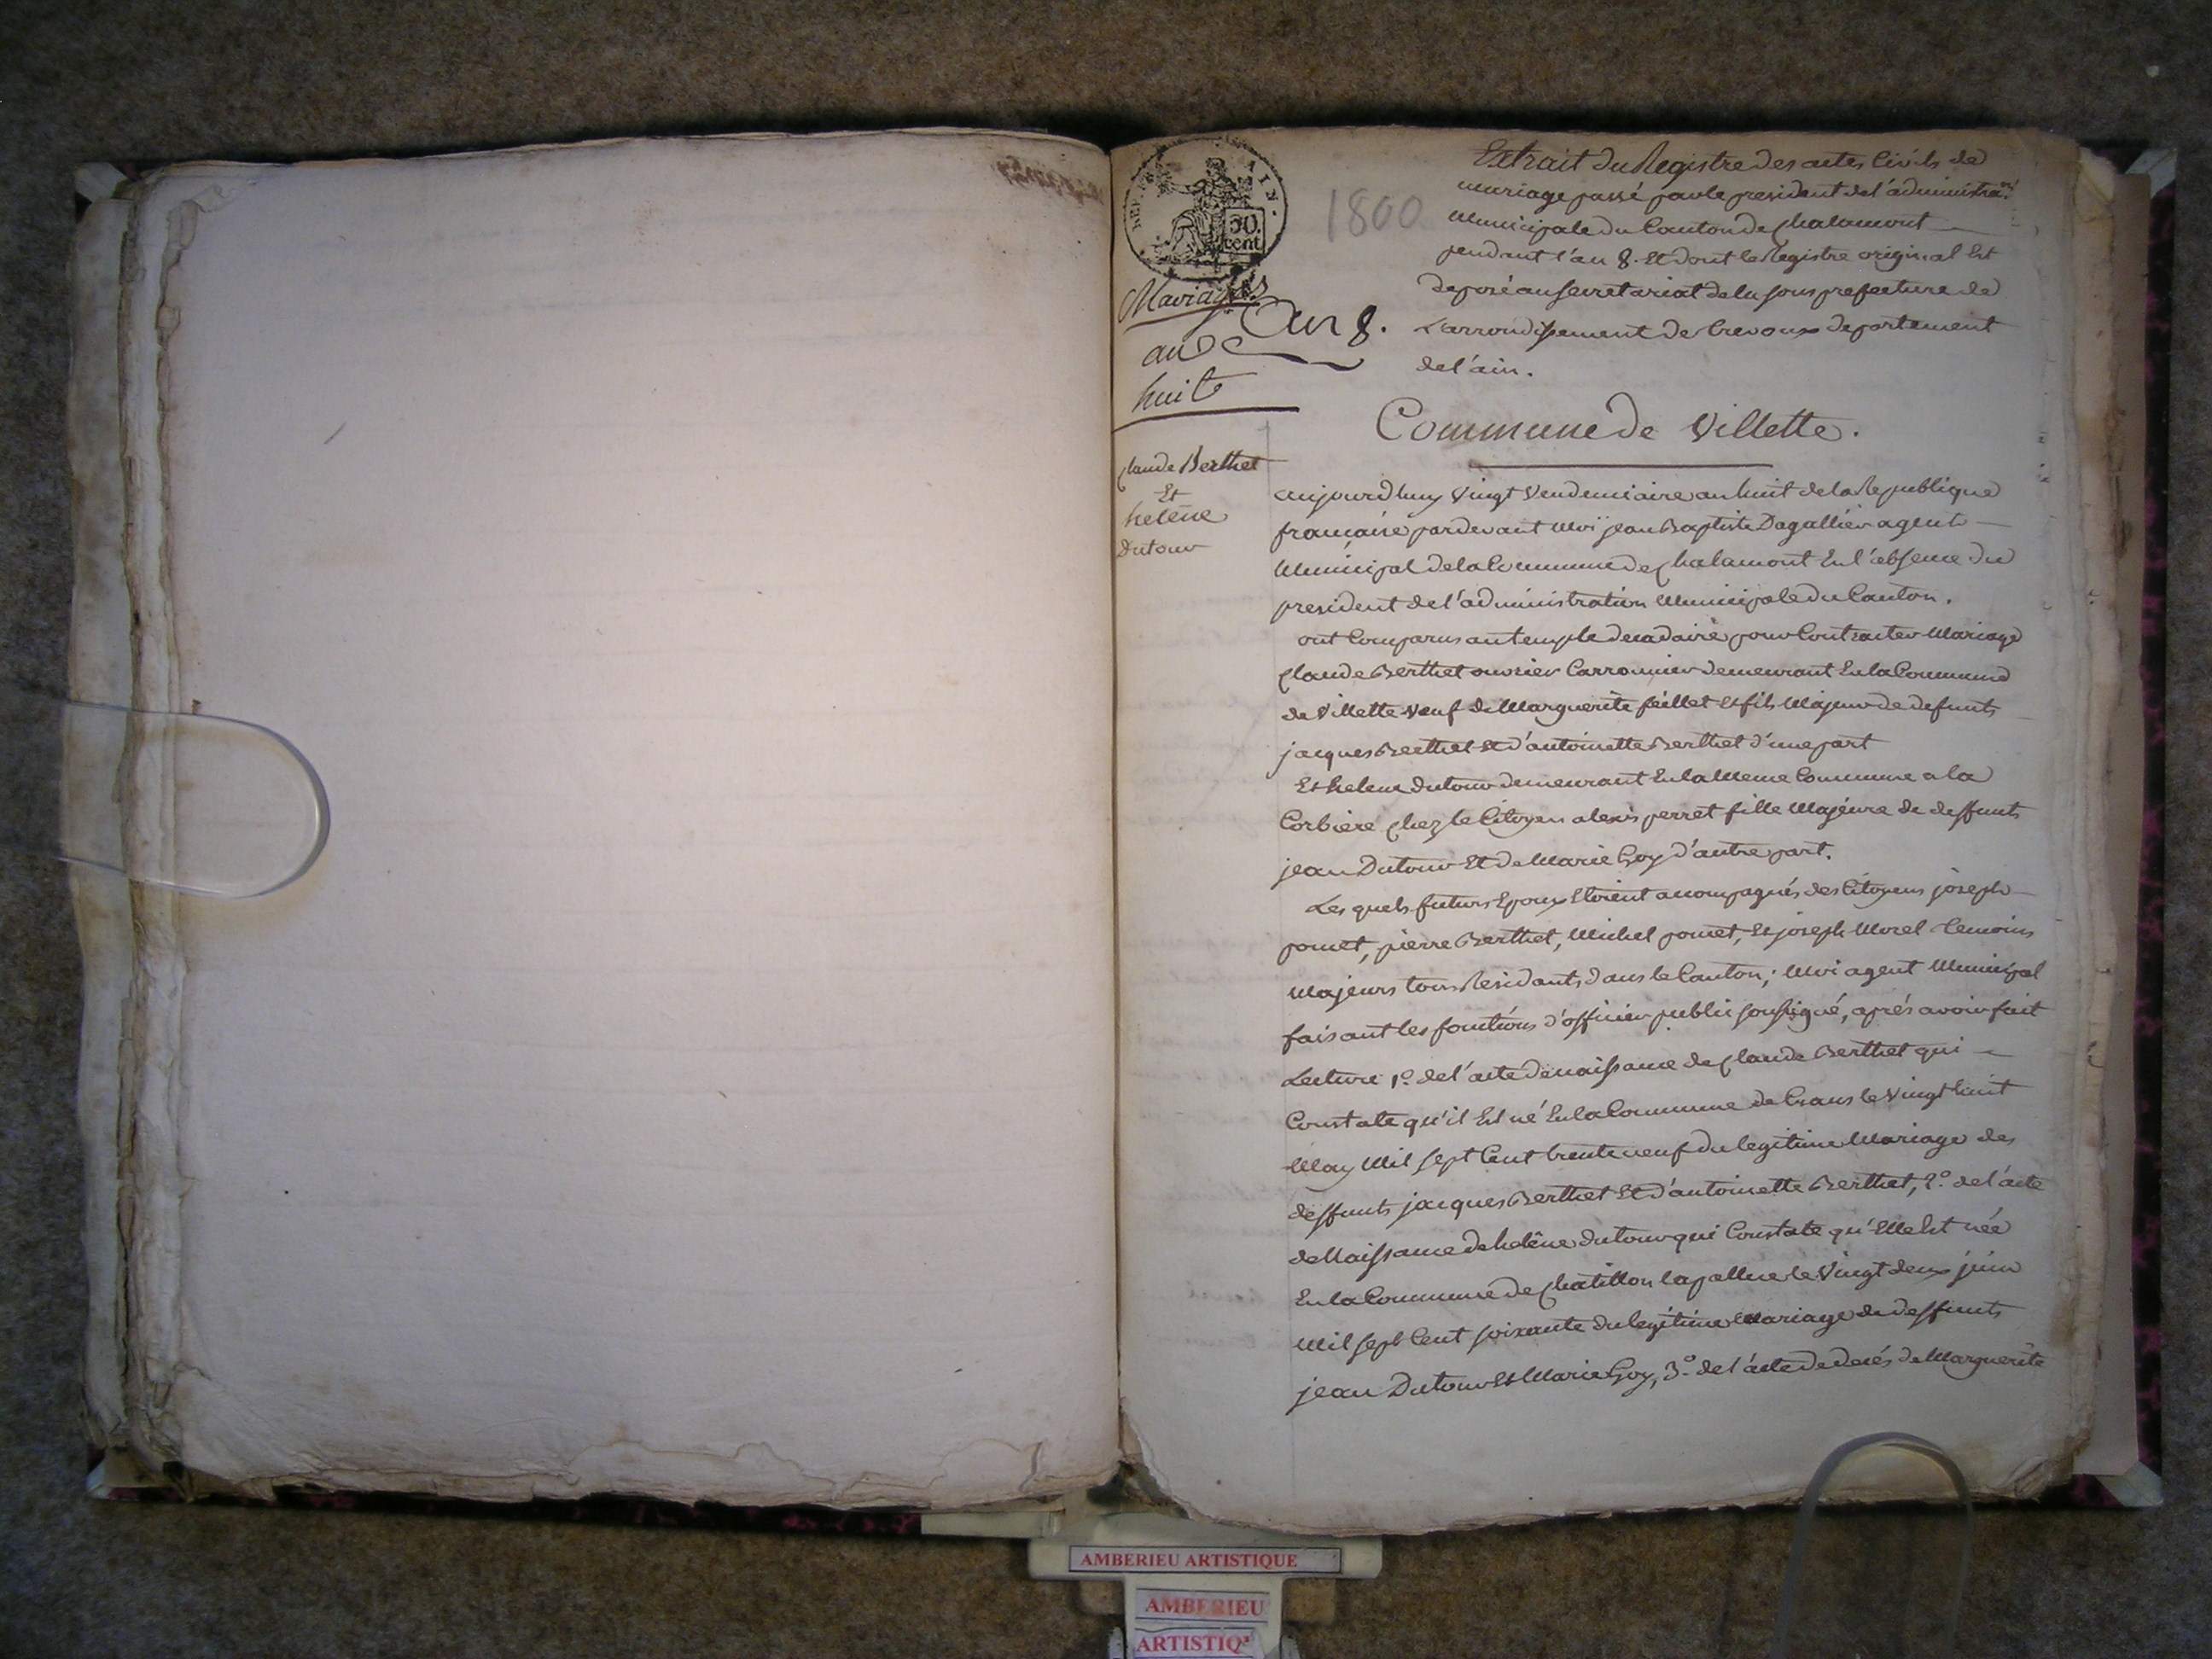 REP. FRA AIN.
50. cent
1800
Mariages
an
huit
An 8.
Extrait du Registre des actes Civils de
mariage passé par le president de l'administra.on
Municipale du Canton de Chalamont
pendant l'an 8. Et dont le Registre original Est
deposé au secretariat de la sous prefecture de
L'arrondissement de trevoux departement
de l'ain.
Commune de Villette.
Claude Berthet
Et
heléne
Dutour
aujourdhuy Vingt Vendemiaire an huit de la Republique
francaise pardevant Moi jean Baptiste Dagallier agent
Municipal de la Commune de Chalamont En l'absence du
president de l'administration Municipale du Canton.
ont Comparus au temple decadaire pour Contracter Mariage
Claude Berthet ouvrier Carronnier demeurant En la Commune
de Villette veuf de Marguerite feillet Et fils Majeur de defunts
jacques Berthet Et d'antoinette Berthet d'une part
Et helene dutour demeurant En la Meme Commune a la
Corbiere Chez le Citoyen alexis perret fille Majeure de deffunts
jean Dutour Et de Marie Goy d'autre part.
Les quels futurs Epoux Etoient acompagnés des Citoyens joseph
pomet, pierre Berthet, Michel pomet, Et joseph Morel temoins
Majeurs tous Residants dans le Canton; Moi agent Municipal
faisant les fonctions d'officier public soussigné, aprés avoir fait
Lecture 1.o de l'acte de naissance de Claude Berthet qui
Constate qu'il Est né En la Commune de Crans le Vingt huit
May Mil sept Cent trente neuf du legitime Mariage des
deffunts jacques Berthet Et d'antoinette Berthet, 2.o de l'acte
de Naissance de heléne dutour qui Constate qu'Elle Est née
En la Commune de Chatillon lapallue le Vingt deux juin
Mil sept Cent soixante du legitime Mariage de deffunts
jean Dutour Et Marie Goy, 3.o de l'acte de decés de Marguerite
AMBERIEU ARTISTIQUE
AMBERIEU
ARTISTIQ